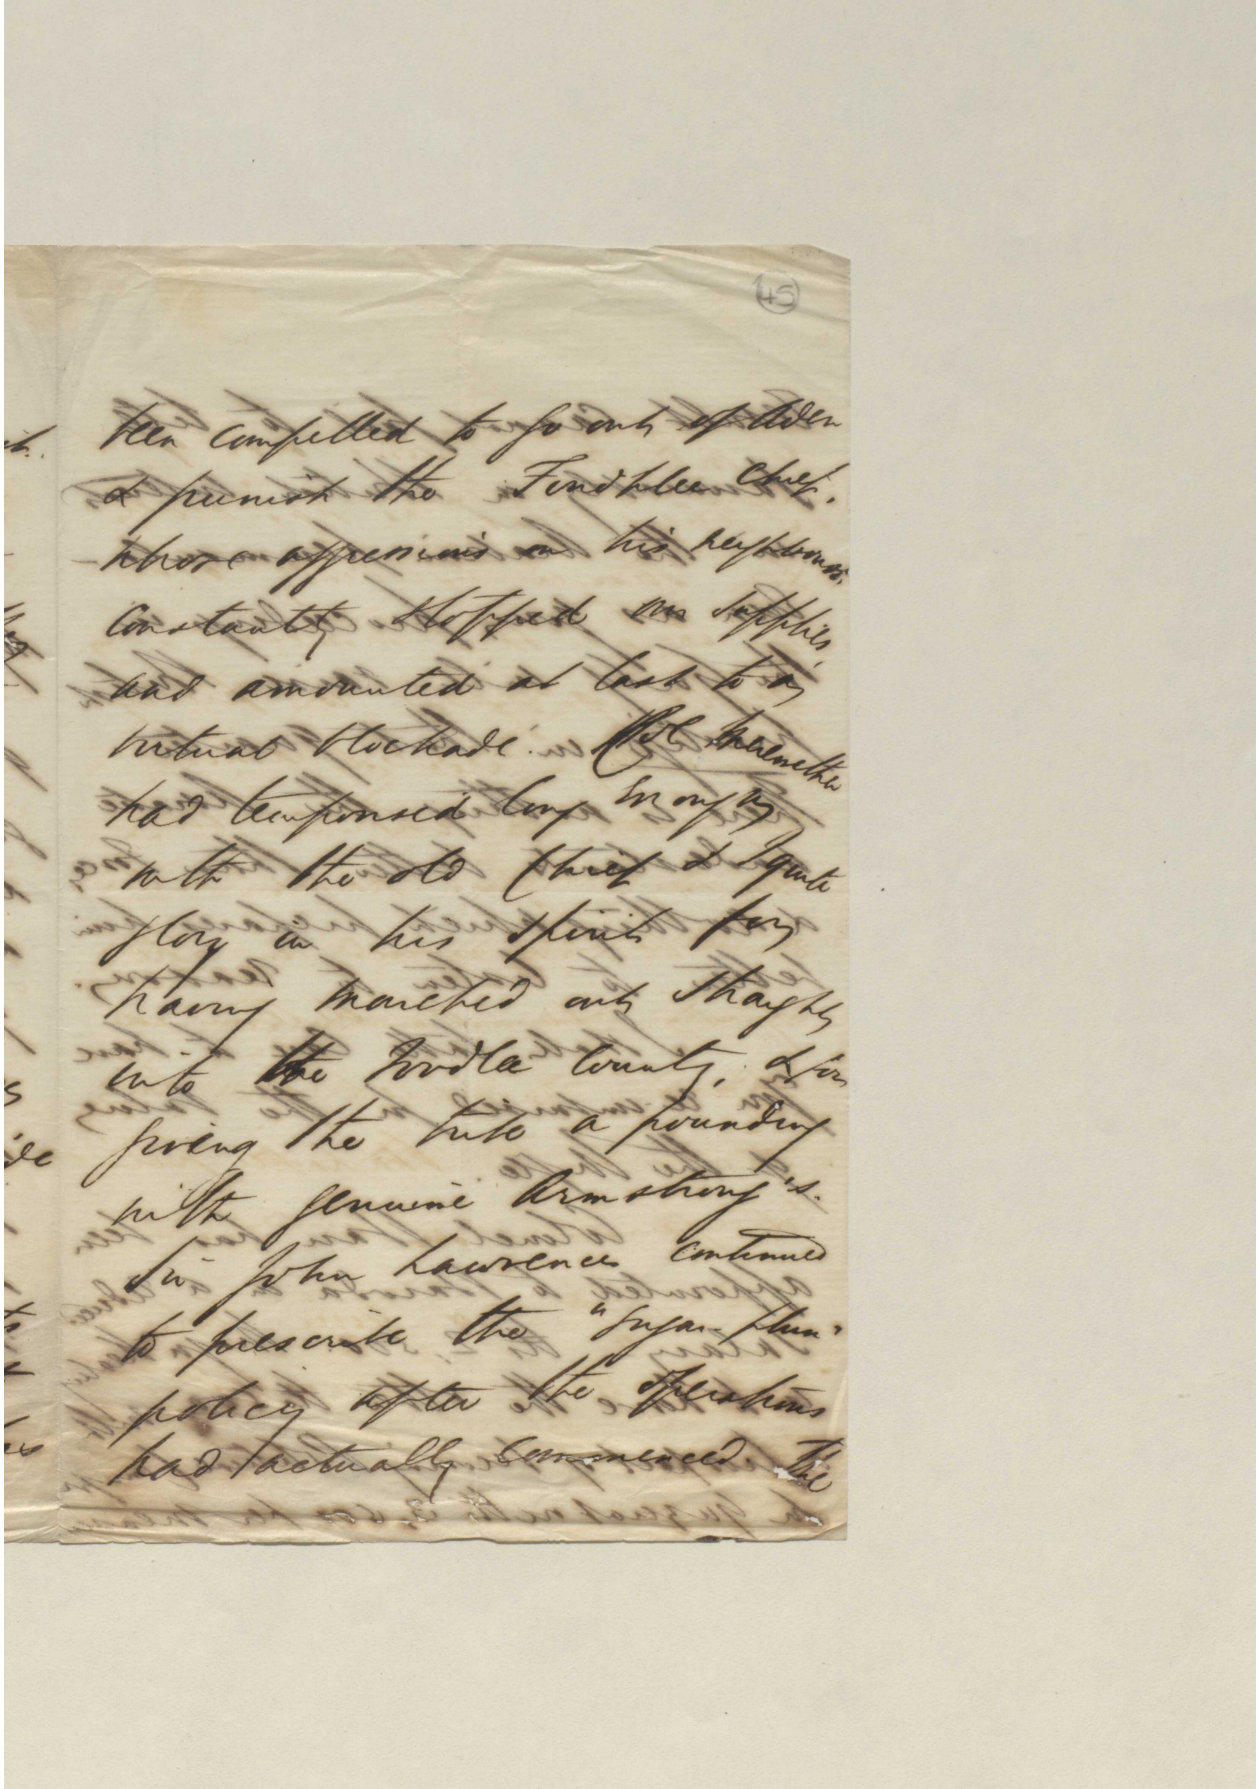 45
been compelled to go out of Aden
& punish the Foudhlee Chief,
whose aggressions on his neighbours,
constantly stopped our supplies
and amounted at last to a
virtual blockade. Col Merewether
had temporised long enough
with the old Chief & I quite
glory in his spirit for
having marched out straight
into the Foudlee Country, & for
giving the tribe a pounding
with genuine Armstrong's.
Sir John Lawrence continued
to prescribe the "Sugar-plum"
policy after the operations
had actually commenced. The